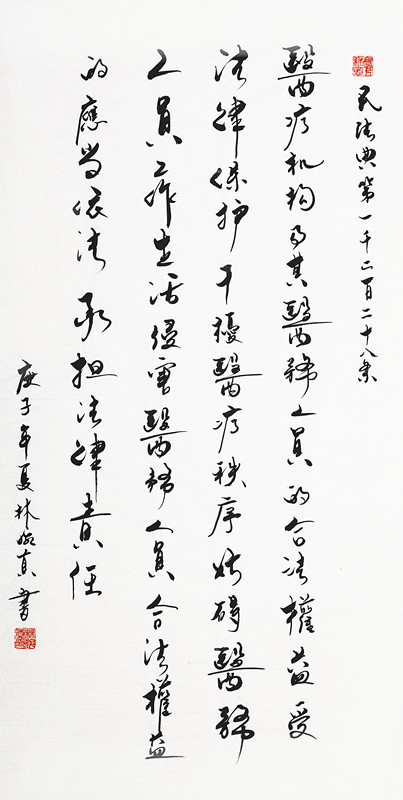 民法典第一千二百二十八条
醫疗机构及其醫務人員的合法權益受
法律保护干擾醫疗秩序妨碍醫務
人員工作生活侵害醫務人員合法權益
的應当依法承担法律責任
庚子年夏林真書